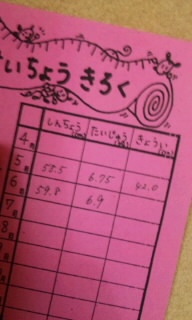 いちょう きろく
しんちょう(cm) たいじゅう(kg) きょうい(cm)
4月
5月 58.5 6.75 42.0
6月 59.8 6.9
7月
8月
9月